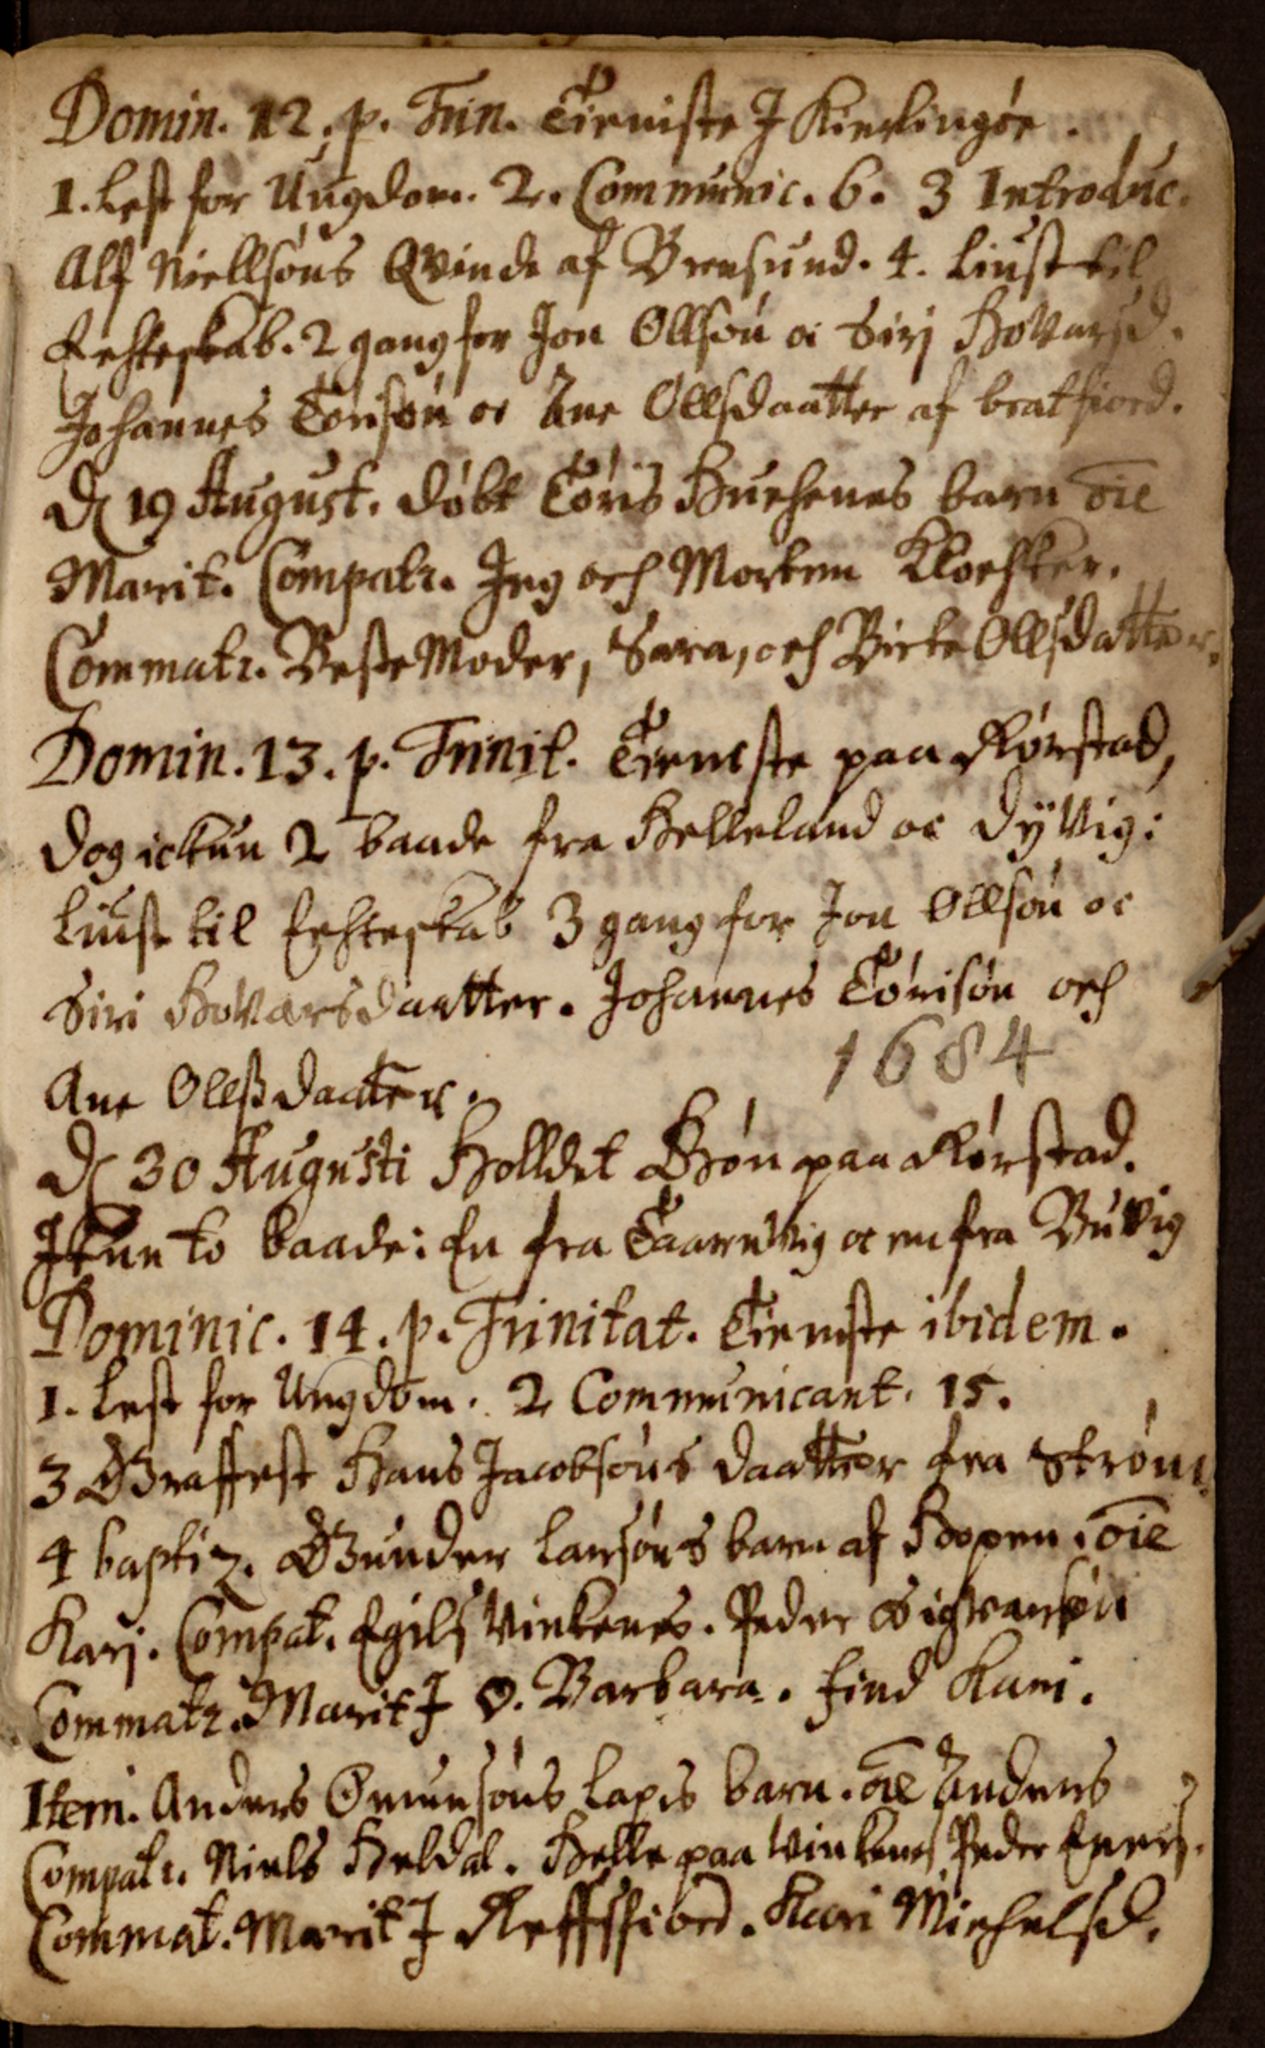 Domin. 12. p. Trin. Tieniste J Kierlingøe.
1. Lest for Ungdom. 2. Communic. 6. 3 Introduc.
Alf Niellsøns Qvinde af Brensund. 4. Liust til
Echteskab. 2 gang for Jon Ollsøn oc Siri HoVarsd.
Johannes Torisøn oc Ane Ollsdaatter af bratfiord.
D 19 August. døbt Tøris Huehenes barn oie
Marit. Compatr. Jeg och Morten Klochker.
Commatr. BesteModer, Sara, och Birte Ollsdatter.
Domin. 13. p. Trinit. Tieniste paa Rørstad,
dog ickun 2 baade fra Helleland oc dyVig:
Liust til Echteskab 3 gang for Jon Ollsøn oc
Siri HoVarsdaatter. Johannes Tørisøn och
1684
Ane Ollsdaatter.
D 30 Augusti Holldet Bøn paa Rørstad.
Jkun to baade: En fra TaarnVig oc en fra BuVig
Dominic. 14. p. Trinitat. Tieniste ibidem.
1. Lest for Ungdom. 2 Communicant. 15.
3 Graffest Hans Jacobsøns daatter fra Strøm.
4 baptiz. Gunder Larsøns barn af Hopen. oie
Kari. Compat. Egils Vinkenes. Peder Sigvarsøn
Commatr. Marit J O. Barbara. find Kari.
Item. Anders Omunsøns Lapis barn. oie Anders
Compatr. Niels Heldal. Helle paa Vinkenes Peder Evers.
Commat. Marit J Reffsfiord. Kari Michelsd.